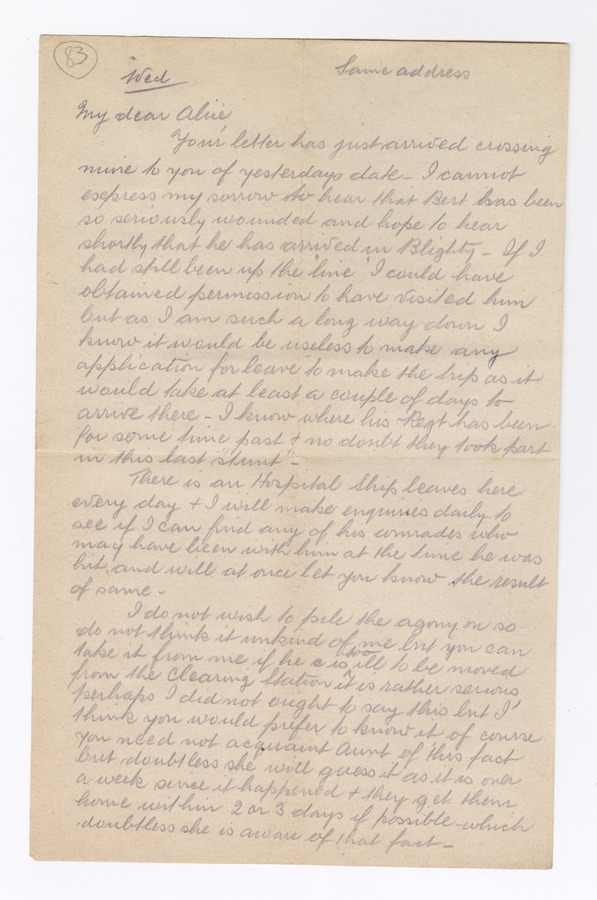 83
Wed
Same address
My dear Alice
Your letter has just arrived crossing
mine to you of yesterdays date - I cannot
express my sorrow to hear that Bert has been
so seriously wounded and hope to hear
shortly that he has arrived in Blighty - If I
had still been up the "line" I could have
obtained permission to have visited him
but as I am such a long way down I
know it would be useless to make any
application for leave to make the trip as it
would take at least a couple of days to
arrive there - I know where his Regt has been
for some time past + no doubt they took part
in this last "stunt" -
There is an Hospital Ship leaves here
every day + I will make enquiries daily to
see if I can find any of his comrades who
may have been with him at the time he was
hit and will at once let you know the result
of same -
I do not wish to pile the agony on so
do not think it unkind of me but you can
take it from me if he is too ill to be moved
from the Clearing Station it is rather serious
perhaps I did not ought to say this but I
think you would prefer to know it of course
you need not acquaint Aunt of this fact
but doubtless she will guess it as it is over
a week since it happened + they get them
home within 2 or 3 days if possible which
doubtless she is aware of that fact -